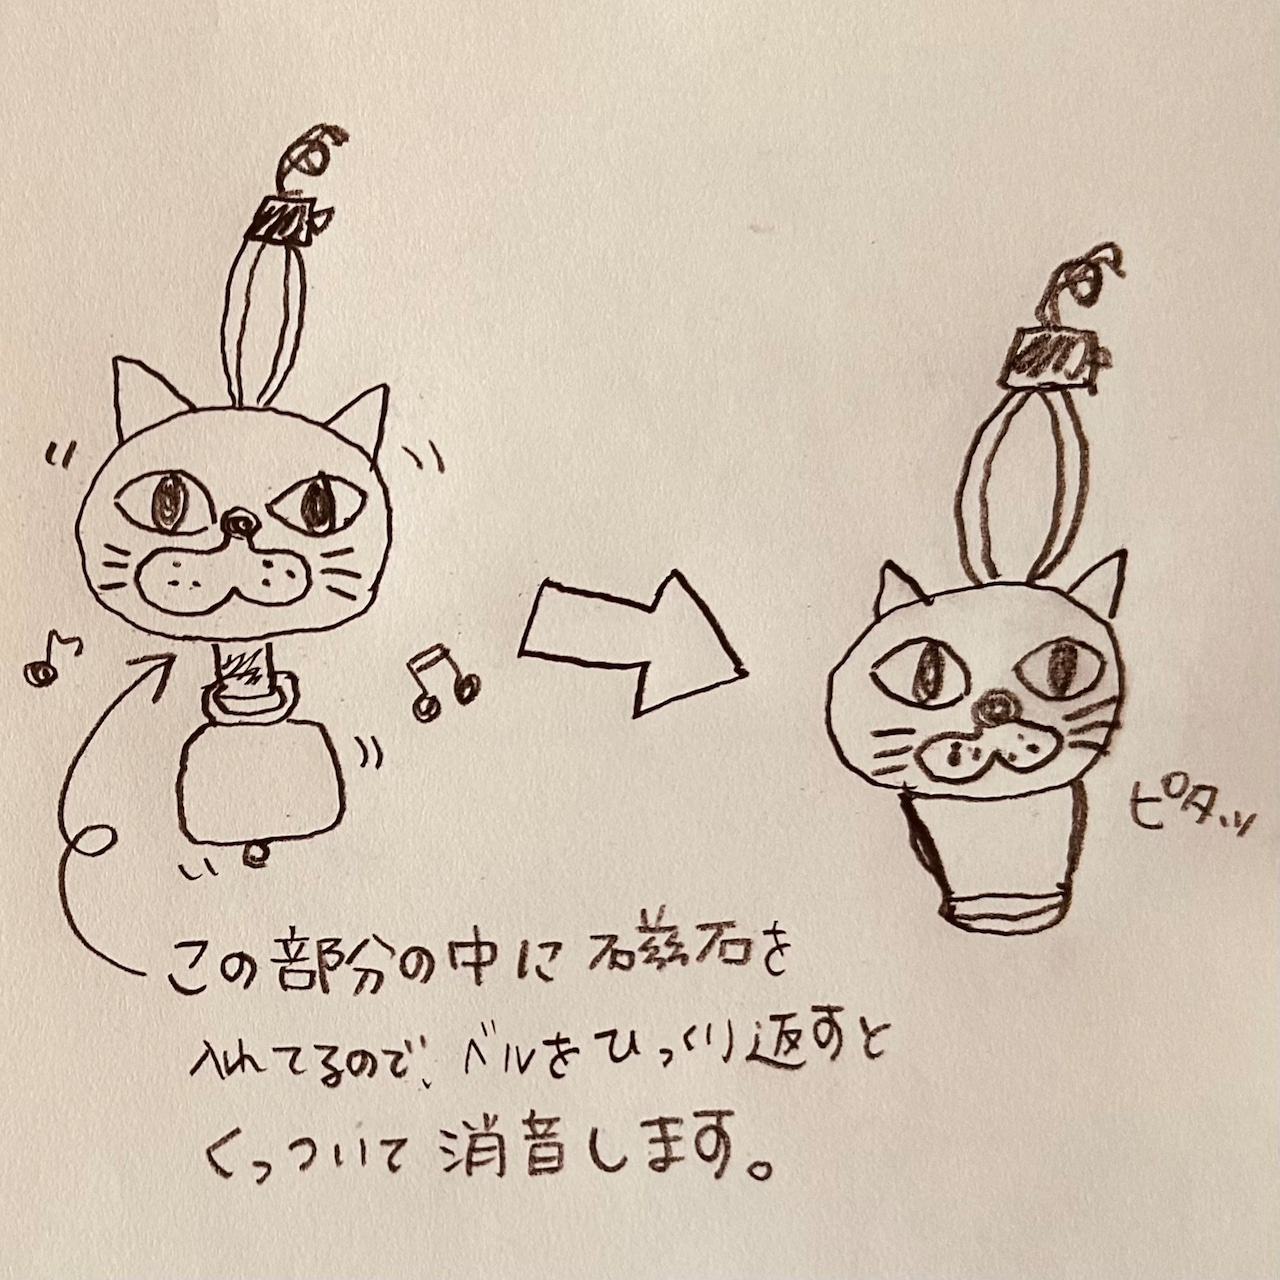 ピタッ
この部分の中に磁石を
入れてるので、ベルをひっくり返すと
くっついて消音します。